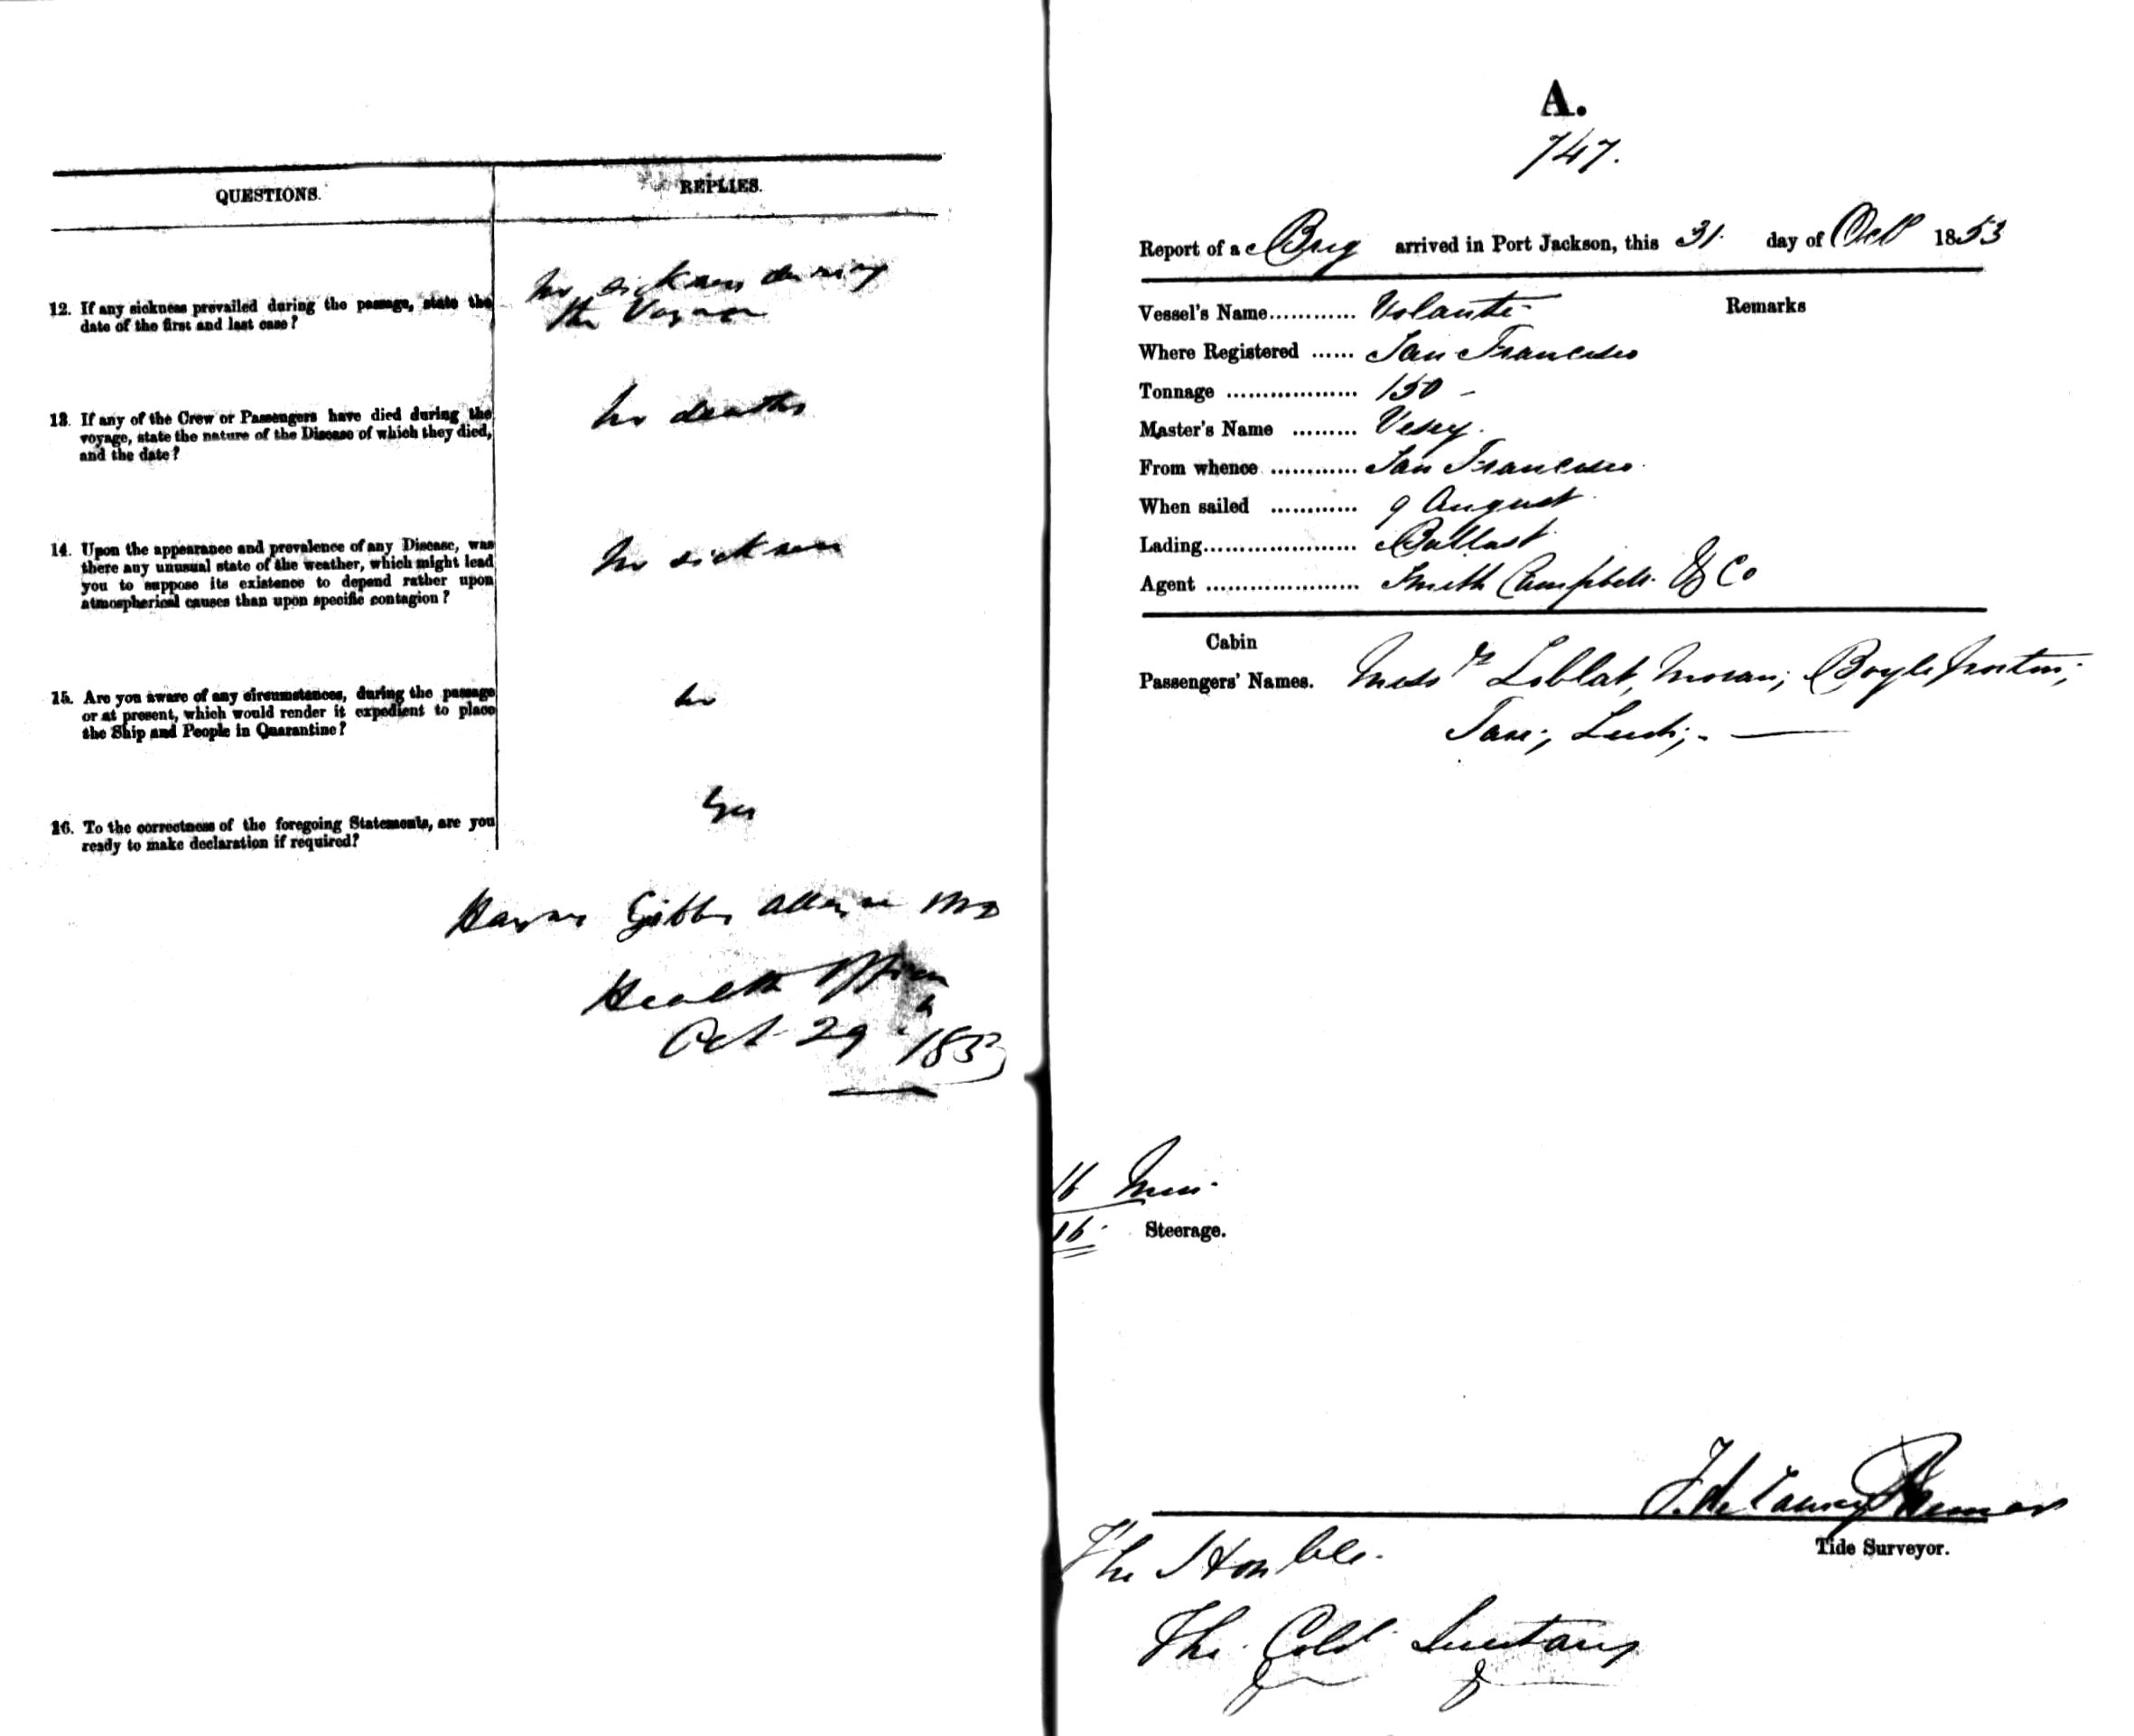 QUESTIONS.
REPLIES.
12. If any sickness prevailed during the passage, state the
date of the first and last case?
No sickness during
the Voyage
13. If any of the Crew or Passengers have died during the
voyage, state the nature of the Disease of which they died,
and the date?
No deaths
14. Upon the appearance and prevalence of any Disease, was
there any unusual state of the weather, which might lead
you to suppose its existence to depend rather upon
atmospherical causes than upon specific contagion?
No sickness
15. Are you aware of any circumstances, during the passage
or at present, which would render it expedient to place
the Ship and People in Quarantine?
No
16. To the correctness of the foregoing Statements, are you
ready to make declaration if required?
Yes
Gibbes Alleyne MD
Health Officer
Oct 29 1853
A.
747.
Report of a Brig arrived in Port Jackson, this 31. day of Octr 1853
Vessel's Name............ Volante
Remarks
Where Registered ...... San Francisco
Tonnage .................. 150 -
Master's Name ......... Vesey.
From whence ............ San Francisco.
When sailed ............ 9 August.
Lading...................... Ballast.
Agent ...................... Smith Campbell & Co
Cabin
Passengers' Names. Messrs Loblat, Moran; Boyle,
16 Men.
16. Steerage.
Tide Surveyor.
The Honble.
The Coll. Secretary